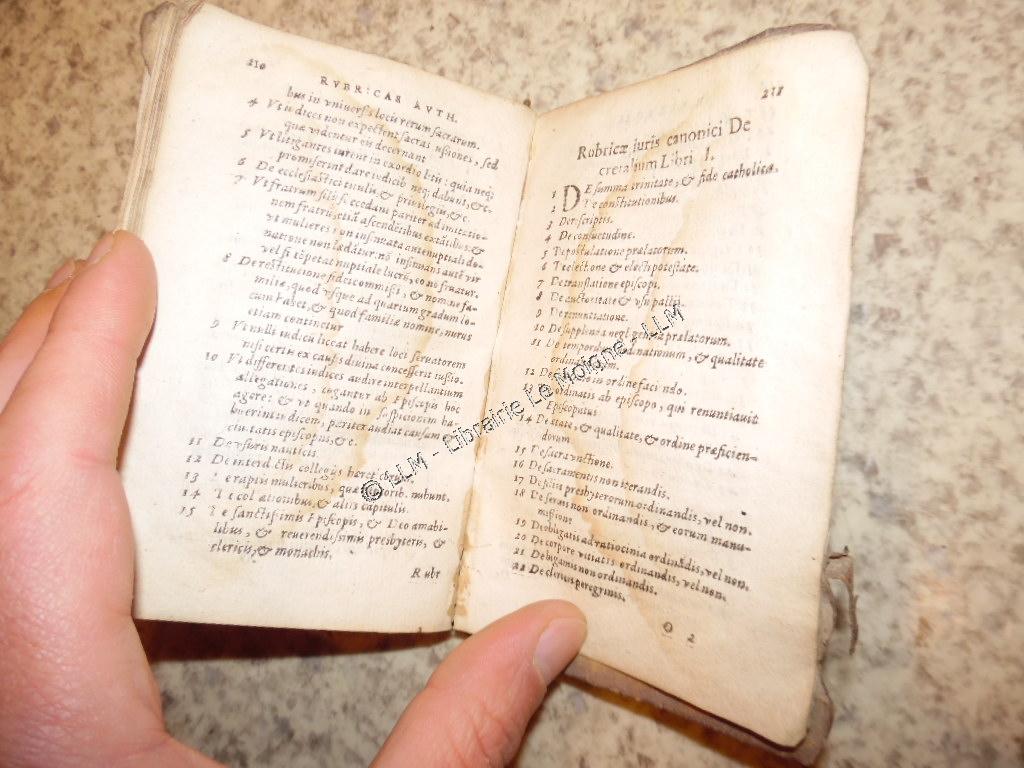 210
RVBRICAS AVTH.
bus in vniuersis locis rerum sacrarum.
4 Vt iudices non expectent sacras iussiones, sed
quæ videntur eis decernant
5 Vt litigantes iurent in exordio litis: quia neq;
promiserint dare iudicib neq; dabunt, &c.
6 De ecclesiasticis titulis, & priuilegijs, &c.
7 Vt fratrum filij succedant pariter ad imitatio-
nem fratrū, etiā ascendētibus extātibus, &
vt mulieres non insinuata ante nuptiali do-
natione non lædātur: nō insinuans autē vir
vel si
8 De restitutione fideicommissi, & nomine fa-
milię, quod vsque ad quartum gradum lo-
cum habet, & quod familiæ nomine, nurus
etiam continetur
9 Vt nulli iudicū liceat habere loci seruatorem
nisi certis ex causis diuina concesserit iussio.
10 Vt differentes iudices audire interpellantium
allegationes, cogantur ab Episcopis hoc
agere: & vt quando in suspicionem ha-
buerint iudicem, pariter audiat causam &
ciuitatis episcopus, &c.
11 De vsuris nauticis.
12 De interdictis collegijs hæreticorum
13 nubunt.
14 De collationibus, & alijs capitulis.
15 De sanctissimis Episcopis, & Deo amabi-
libus, & reuerendissimis presbyteris, &
clericis, & monachis.
Rubr
211
Rubricæ Iuris canonici De
cretalium Libri I.
1 DE summa trinitate, & fide catholica.
2 De constitutionibus.
3 De rescriptis.
4 De consuetudine.
5 De postulatione prælatorum.
6 De electione & electi potestate.
7 De translatione episcopi.
8 De auctoritate & vsu pallij.
9 De renuntiatione.
10 De supplenda negligentia prælatorum.
11 De temporibus ordinationum, & qualitate
ordinandorum.
12 De scrutinio in ordine faciendo.
13 De ordinatis ab episcopo, qui renuntiauit
Episcopatui
14 De ætate, & qualitate, & ordine præficien-
dorum.
15 De sacra vnctione.
16 De sacramentis non iterandis.
17 De filijs presbyterorum ordinandis, vel non.
18 De seruis non ordinandis, & eorum manu-
missione
19 De obligatis ad ratiocinia ordinādis, vel non.
20 De corpore vitiatis ordinandis, vel non.
21 De bigamis non ordinandis.
22 De clericis peregrinis.
O 2
© LLM - Librairie Le Moigne - LLM